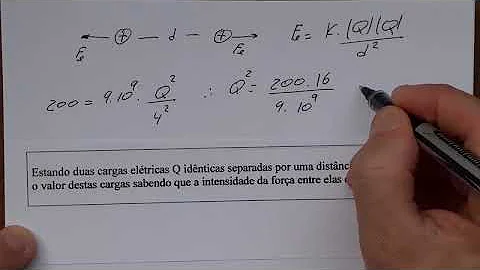 Fe ⊕ — d — ⊕ Fe Fe = K. |Q||Q| / d²
200 = 9.10⁹. Q² / 4² ∴ Q² = 200.16 / 9.10⁹
Estando duas cargas elétricas Q idênticas separadas por uma
o valor destas cargas sabendo que a intensidade da força entre elas